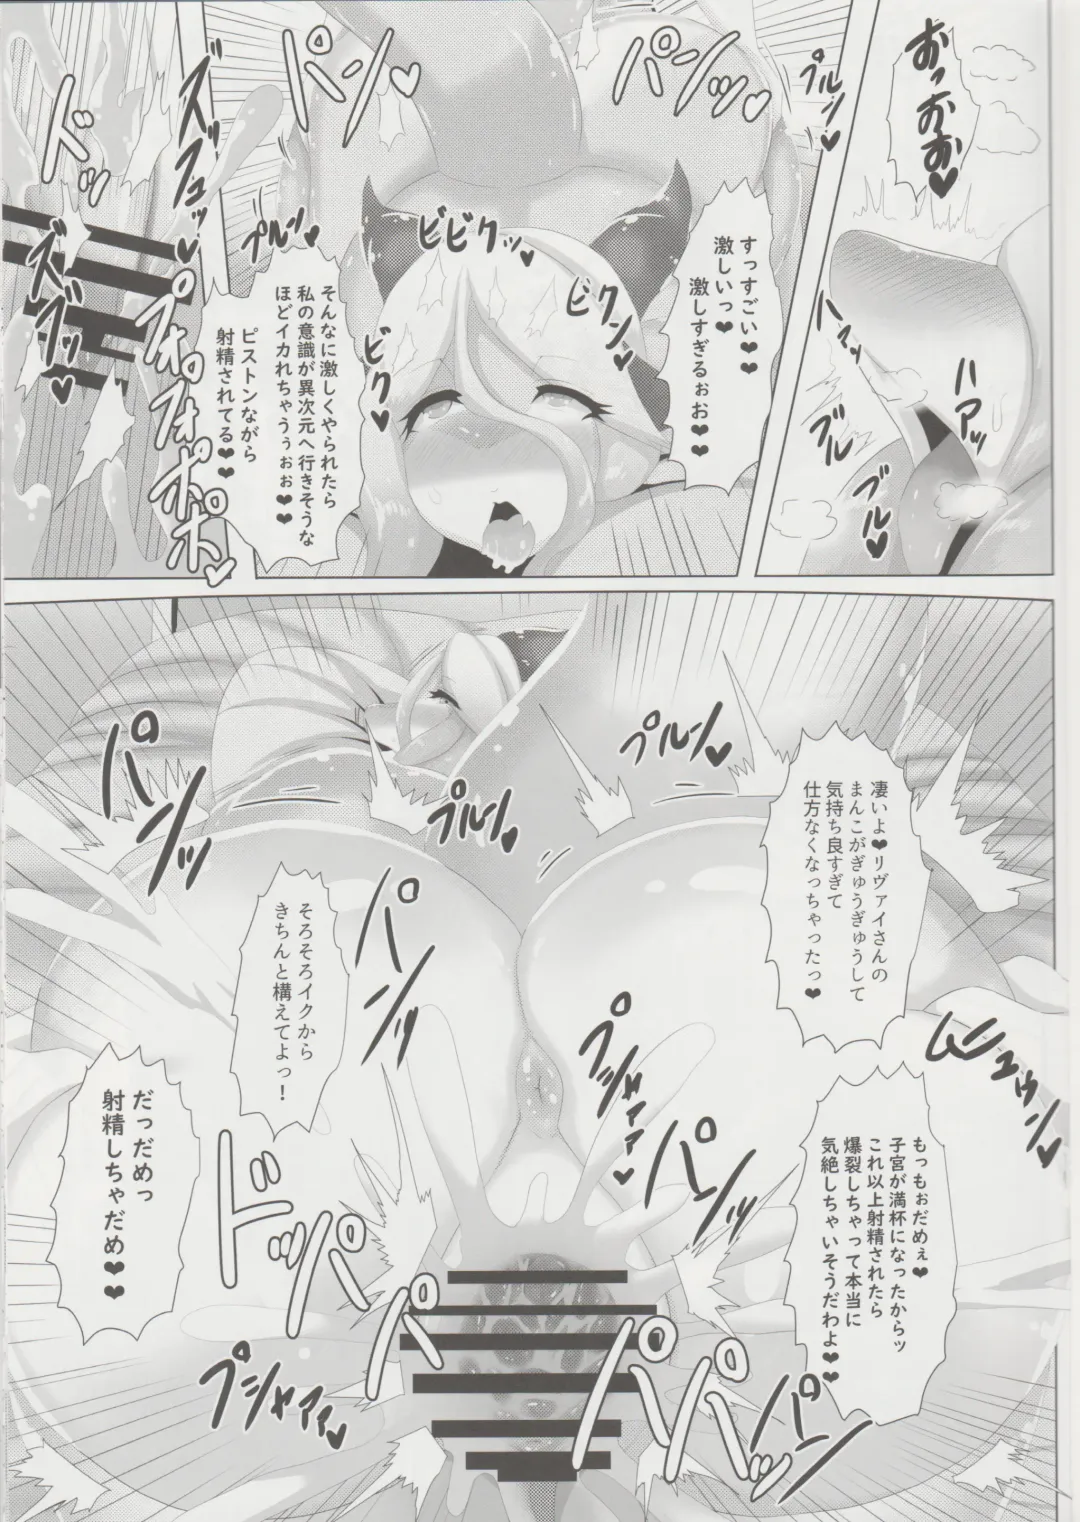 おっおおお♥
ハァハァッ
ブルブル♥
すっすごい♥♥
激しいっ♥
激しすぎるぉお♥♥
パンパンッ♥
プルンッ♥
ビビクッ♥
ビクンッ♥
ビクビク♥
そんなに激しくやられたら
私の意識が異次元へ行きそうな
ほどイカれちゃうぅぉぉ♥♥
ピストンながら
射精されてる♥♥
プルンッ♥
ドッ
凄いよ♥リヴァイさんの
まんこがぎゅうぎゅうして
気持ち良すぎて
仕方なくなっちゃったっ♥
プルンッ♥
プルンッ♥
パンッ
パンッ
そろそろイクから
きちんと構えてよっ！
もっもぉだめぇ♥
子宮が満杯になったからッ
これ以上射精されたら
爆裂しちゃって本当に
気絶しちゃいそうだわよ♥♥
プシャァァァ♥
パンッ
だっだめっ
射精しちゃだめ♥♥
プシャァァァ♥
パパパッ
パンッ